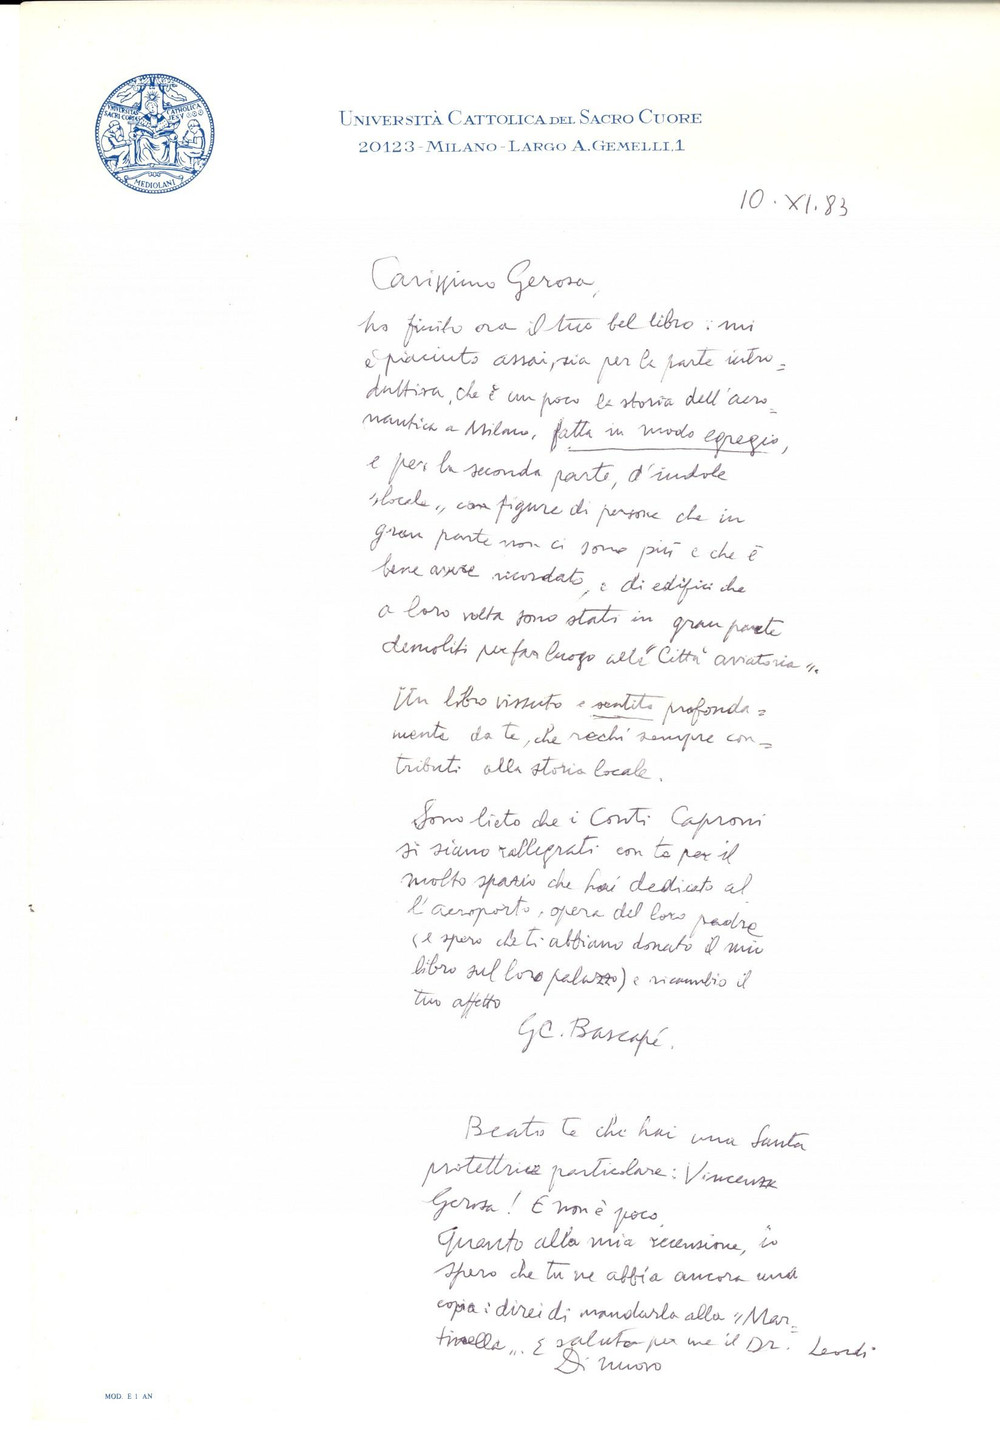 UNIVERSITAS CATHOLICA
SACRI CORDIS JESV
MEDIOLANI
UNIVERSITÀ CATTOLICA DEL SACRO CUORE
20123 - MILANO - LARGO A. GEMELLI, 1
10.XI.83
Carissimo Gerosa,
ho finito ora il tuo bel libro: mi
è piaciuto assai, sia per la parte intro=
duttiva, che è un poco la storia dell'aero=
nautica a Milano, fatta in modo egregio,
e per la seconda parte, d'indole
"locale", con figure di persone che in
gran parte non ci sono più e che è
bene avere ricordato, e di edifici che
a loro volta sono stati in gran parte
demoliti per far luogo alla "Città aviatoria".
Un libro vissuto e sentito profonda=
mente da te, che rechi sempre con=
tributi alla storia locale.
Sono lieto che i Conti Caproni
si siano rallegrati con te per il
molto spazio che hai dedicato al
l'aeroporto, opera del loro padre
(e spero che ti abbiano donato il mio
libro sul loro palazzo) e ricambio il
tuo affetto
GC. Bascapé.
Beato te che hai una Santa
protettrice particolare: Vincenza
Gerosa! E non è poco.
Quanto alla mia recensione, io
spero che tu ne abbia ancora una
copia: direi di mandarla alla "Mar=
tinella". E saluta per me il Dr.
Di nuovo
MOD. E 1 AN